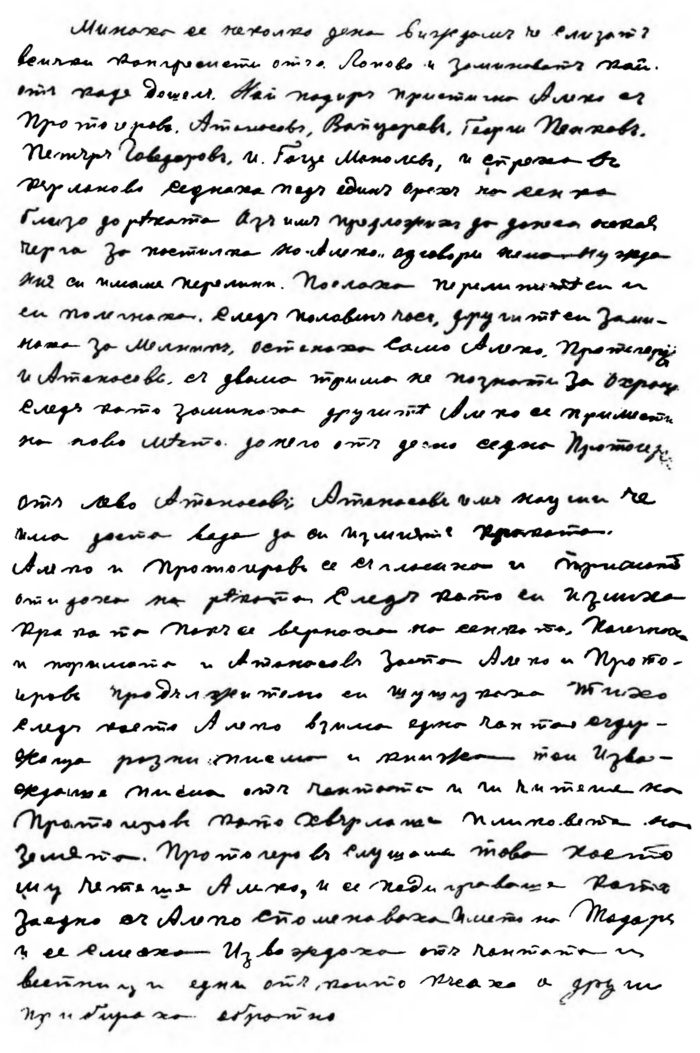 Минаха се неколко дена виждамъ че слизатъ
всички конгресисти отъ с. Лопово и заминаватъ кой.
отъ каде дошелъ. Най подиръ пристигна Алеко съ
Протогерова, Атанасовъ, Вапцаровъ, Георги Пенковъ.
Петъръ Говедаровъ, и. Гоце Манолевъ, и стража въ
керланово седнаха подъ единъ орехъ на сенка
близо до рѣката Азъ имъ предложихъ да донеса некая
черга за постилка но Алеко.. одговори нема нужда
ний си имаме перелини. Послаха перелинитѣ си и
си полегнаха. Следъ половинъ часъ, другитѣ си зами-
наха за Мелникъ, останаха само Алеко, Протогеровъ
и Атанасовъ. съ двама трима не познати за охрана
Следъ като заминаха другитѣ Алеко се примести
на ново место. до него отъ десно седна Протогеровъ
отъ лево Атанасовъ; Атанасовъ имъ каза че
има доста вода да си измиятъ краката.
Алеко и Протогеровъ се съгласиха и тримата
отидоха на рѣката Следъ като си измиха
краката пакъ се вернаха на сенката. Полегнаха
и тримата и Атанасовъ заспа Алеко и Прото-
геровъ продължително си шушукаха тихо
следъ което Алеко взима една чанта съдър-
жаща разни писма и книжа той изва-
ждаше писма отъ чантата и ги читеше на
Протогеровъ като хвърлаше пликовета на
земята. Протогеровъ слушаше това което
му четеше Алеко, и се подиграваше като
заедно съ Алеко споменаваха името на Тодоръ
и се смееха Извождаха отъ чантата и
вестници едни отъ, които късаха а други
прибираха обратно